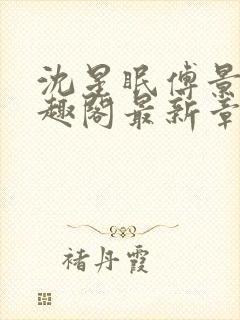 沈星眠傅景
趣阁最新章
褚丹霞